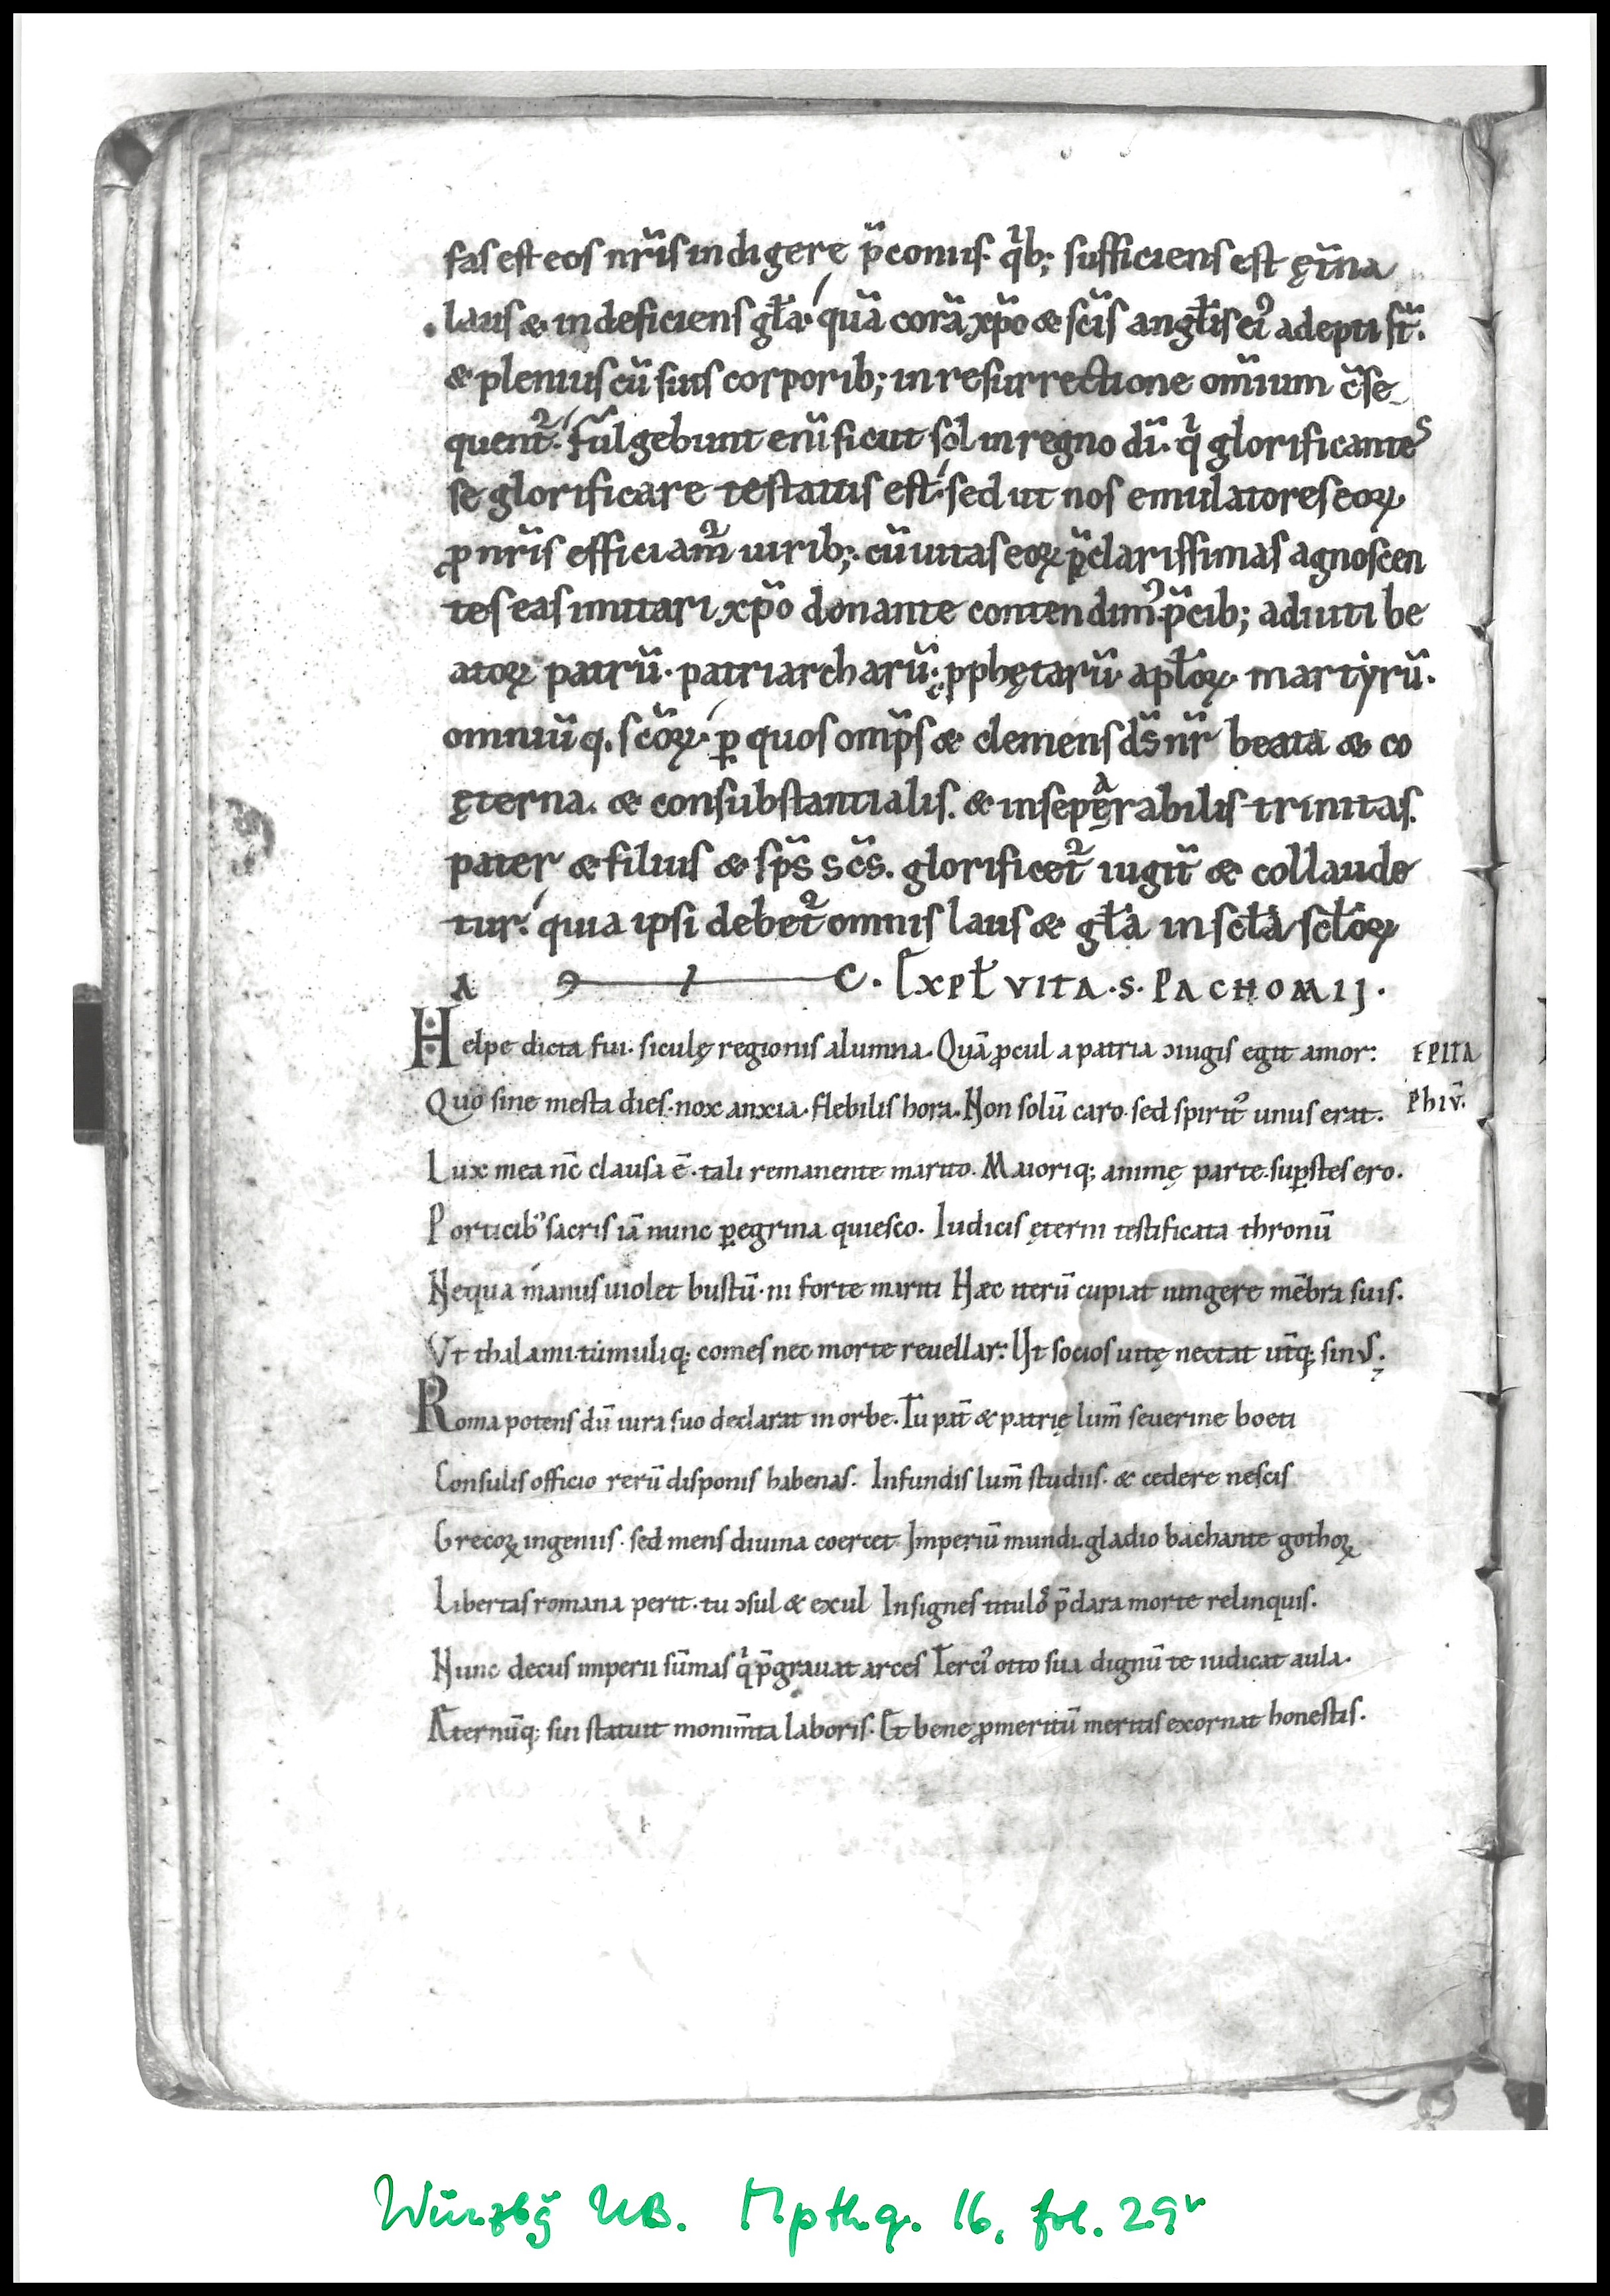 fas est eos nr̄is indigere p̄coniis. qⁱb; sufficiens est ęt̄na
laus & indeficiens gła. quā corā xp̄o & sc̄is angłis eiꝰ adepti st̄.
& plenius cū suis corporib; in resurrectione om̄ium c̄se
quent᷑. Fulgebunt eni᷑ sicut sol in regno dī. qⁱ glorificantes
se glorificare testatus est. sed ut nos emulatores eoꝝ
ꝓ nr̄is efficiam᷑ uirib;. cū uitas eoꝝ p̄clarissimas agnoscen
tes eas imitari xp̄o donante contendimꝰ. p̄cib; adiuti be
atoꝝ patrū. patriarcharū. ꝓphętarū. apłoꝝ. martyrū.
omniūq. sc̄oꝝ. ꝑ quos omp̄s & clemens ds̄ nr̄ beata & co
ęterna. & consubstantialis. & insepęrabilis trinitas.
a
pater & filius & sp̄s sc̄s. glorificet᷑ iugit̄ & collaude
tur. quia ipsi debet᷑ omnis laus & gła in scła scłoꝝ
A 9 C. EXPŁ VITA. S. PACHOMIJ.
Helpe dicta fui. siculę regionis alumna. Quā ꝓcul a patria ɔiugis egit amor:
EPITA
PhIV̄.
Quo sine mesta dies. nox anxia. flebilis hora. Non solū caro. sed spiritꝰ unus erat.
Lux mea nc̄ clausa ē. tali remanente marito. Maioriq; animę parte. suꝑstes ero.
Porticibꝰ sacris iā nunc ꝑegrina quiesco. Iudicis ęterni testificata thronū
Nequa manus uiolet bustū. ni forte mariti Hæc iterū cupiat iungere mēbra suis.
Vt thalami. tumuliq; comes nec morte reuellar: Et socios uitę nectat ut̄q; sinus.
Roma potens dū iura suo declarat in orbe. Tu pat̄ & patrię lum̄ seuerine boeti
Consulis officio rerū disponis habenas. Infundis lum̄ studiis. & cedere nescis
Grecoꝝ ingeniis. sed mens diuina coercet Imperiū mundi. gladio bachante gothoꝝ
Libertas romana perit. tu ɔsul & exul Insignes titulos p̄clara morte relinquis.
Nunc decus imperii sūmas qⁱ p̄grauat arces Terciꝰ otto sua dignū te iudicat aula.
Æternūq; sui statuit monim̄ta laboris. Et bene ꝓmeritū meritis exornat honestis.
Würzbg UB. Mp th. q. 16, fol. 29v